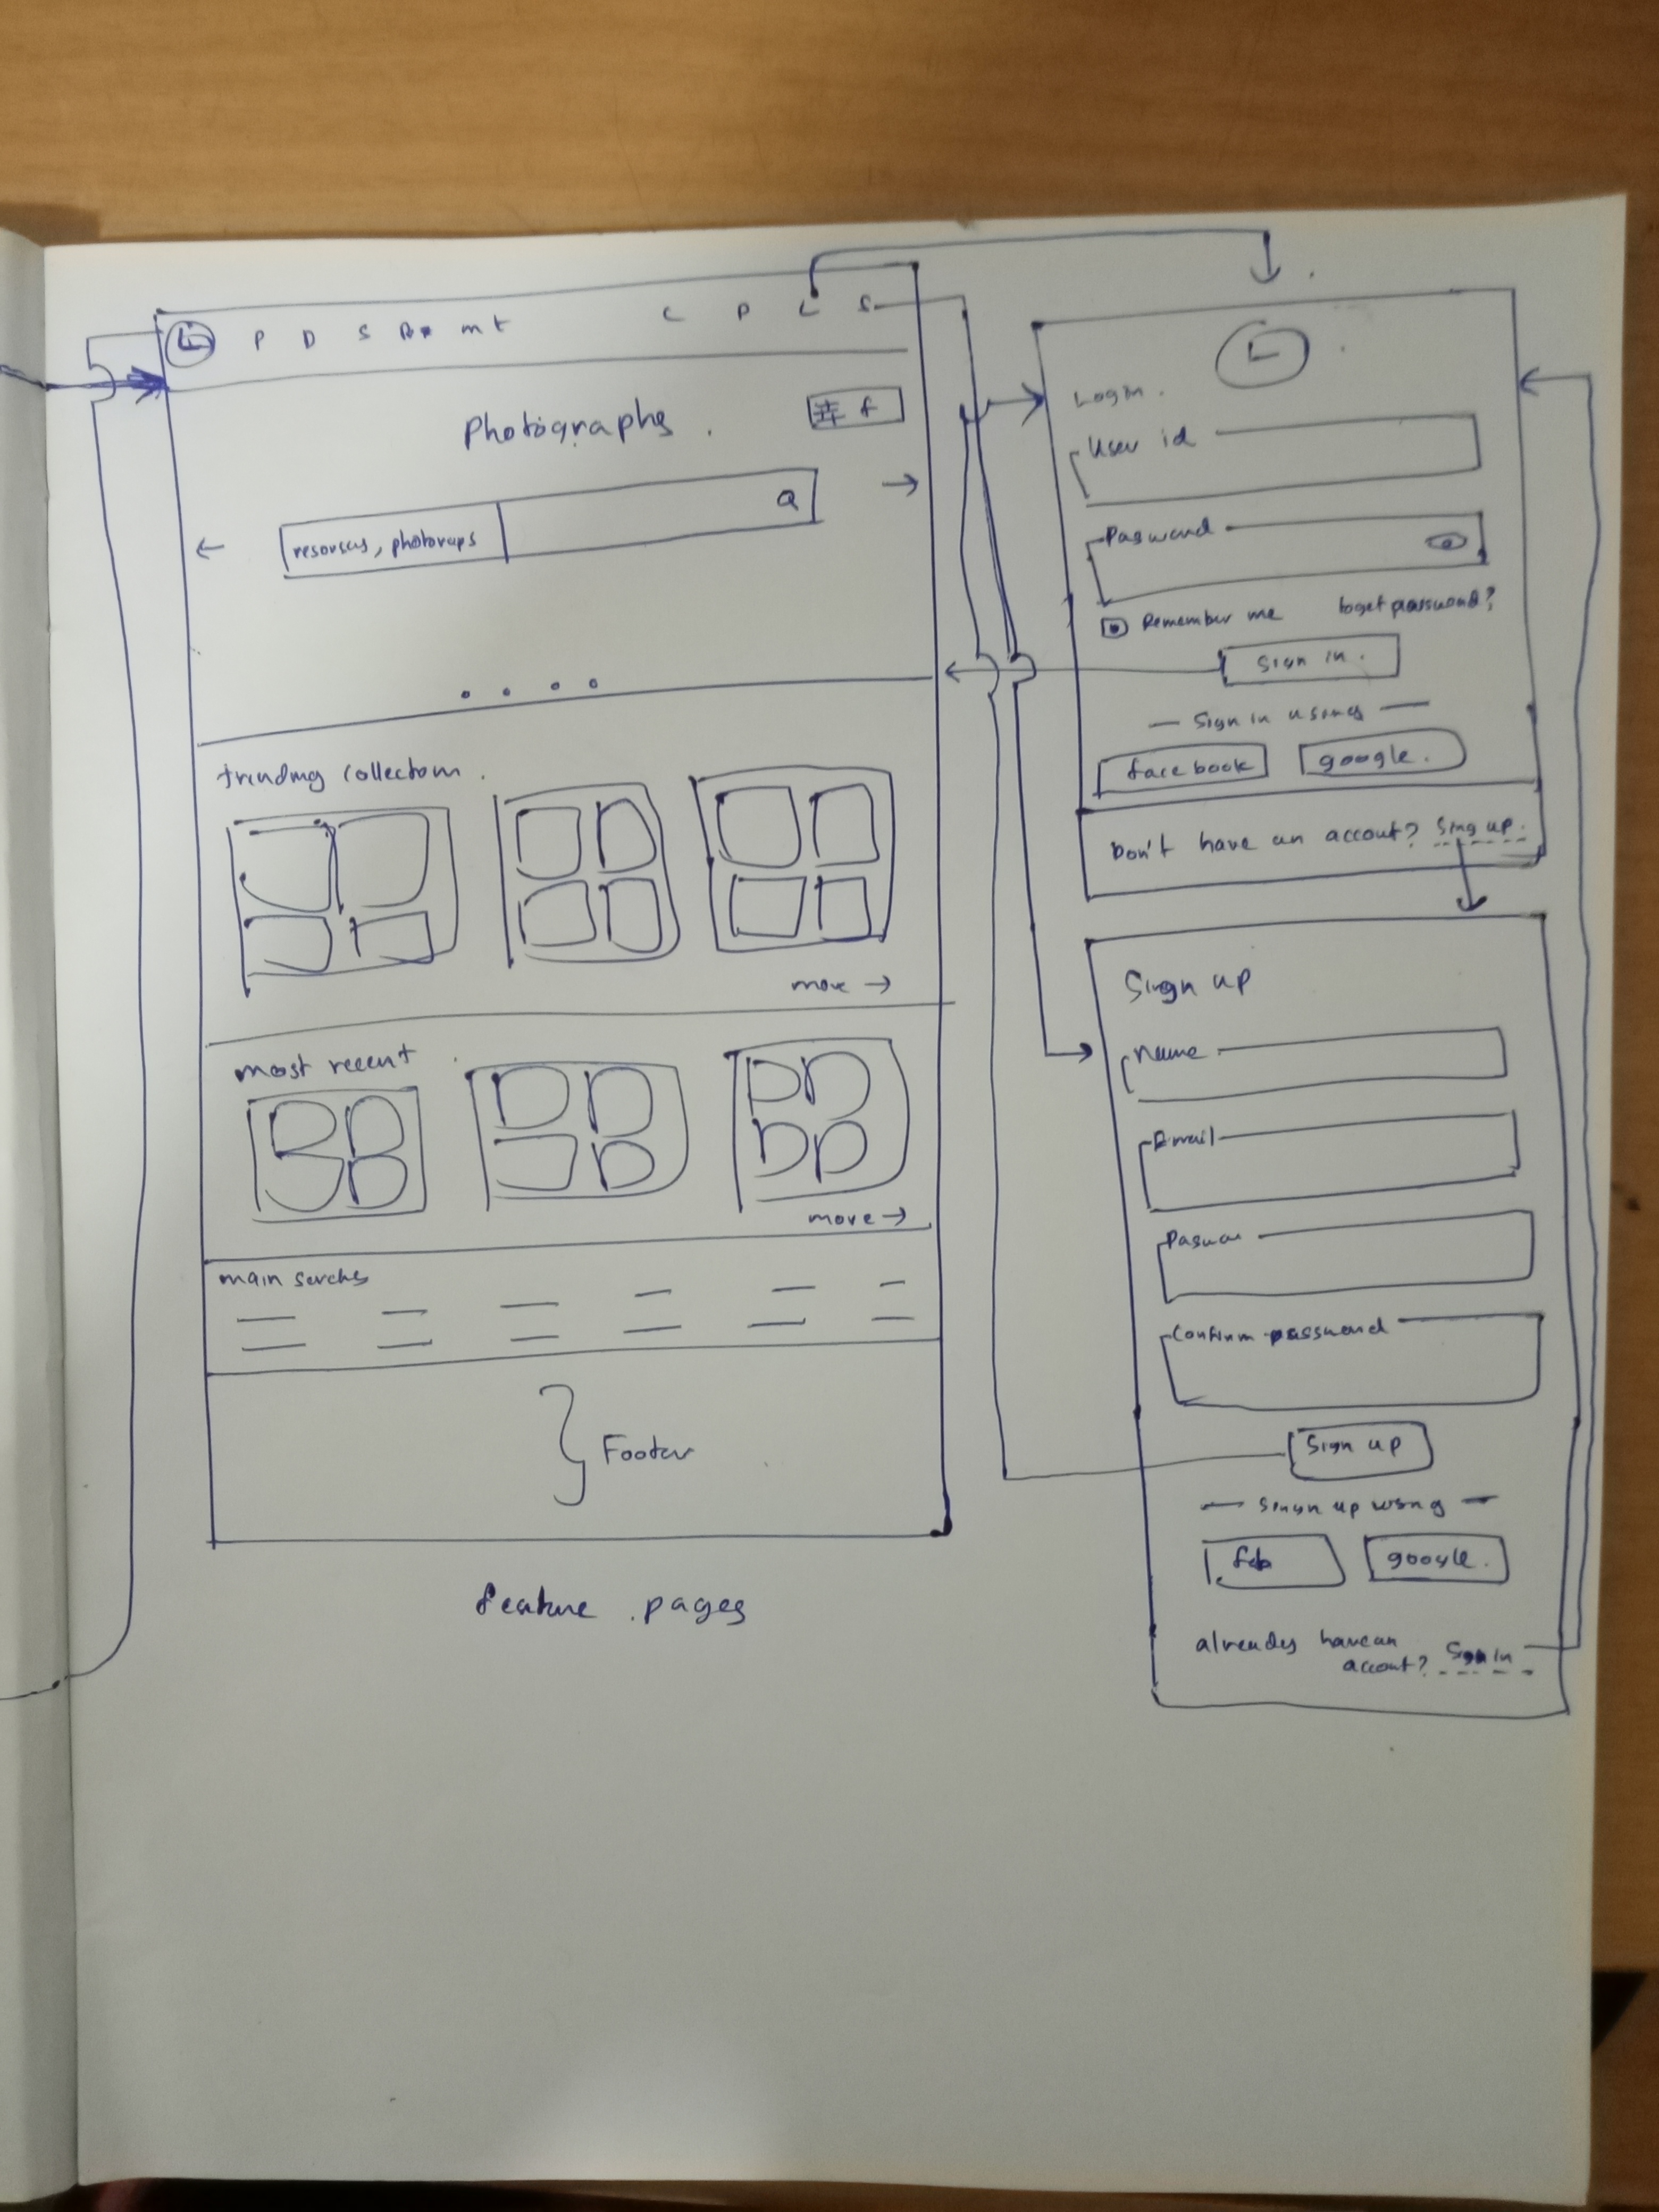 L P D S R mt C P L S
Photographs.
f
resorses, photoraps
trending collectom.
more →
most recent.
more →
main serchs
Footer
feature pages
L
Login.
User id
Password
Remember me foget password?
Sign in.
— Sign in using —
facebook google.
Don't have an accout? Sing up.
Sign up
Name
Email
Confirm password
Sign up
google.
already have an
accout? Sign in